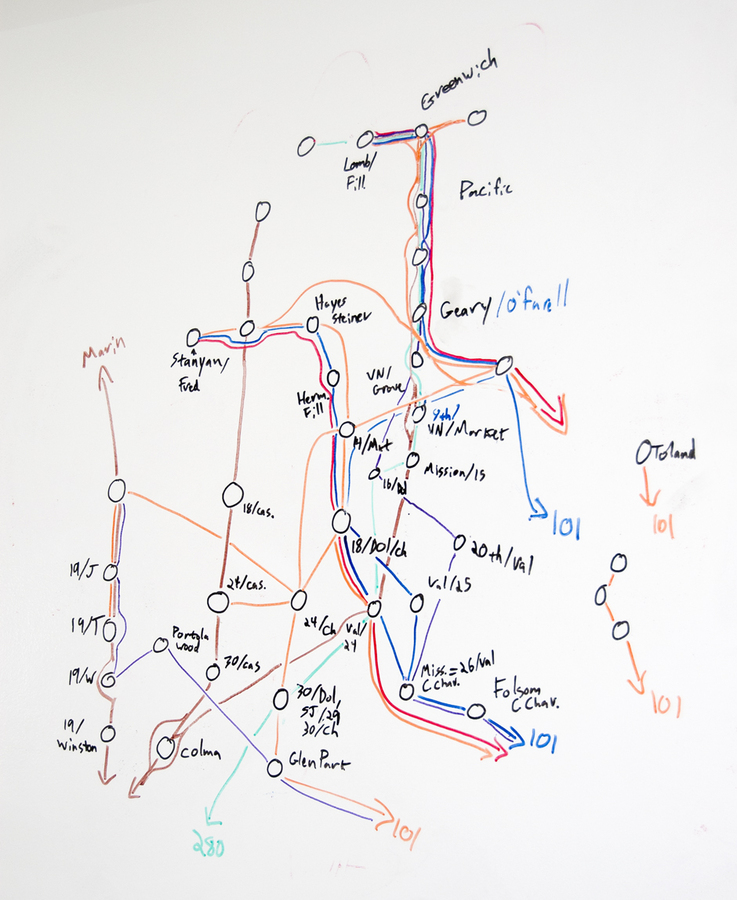 Greenwich
Lomb/
Fill
Pacific
Geary/O'Farell
Hayes
Steiner
Stanyan/
Fred
Marin
VN/
Grove
Herm.
Fill
9th/
VN/Market
14/Mkt
Mission/15
16/Dol
Toland
101
18/cas.
101
18/Dol/ch
20th/Val
19/J
Val/25
24/cas.
19/T
24/Ch
Val/
24
Portola
wood
19/W
30/cas
Miss.=26/Val
C Chav.
101
30/Dol,
SJ/29
30/Ch
Folsom
C Chav.
19/
Winston
Colma
101
Glen Park
280
101